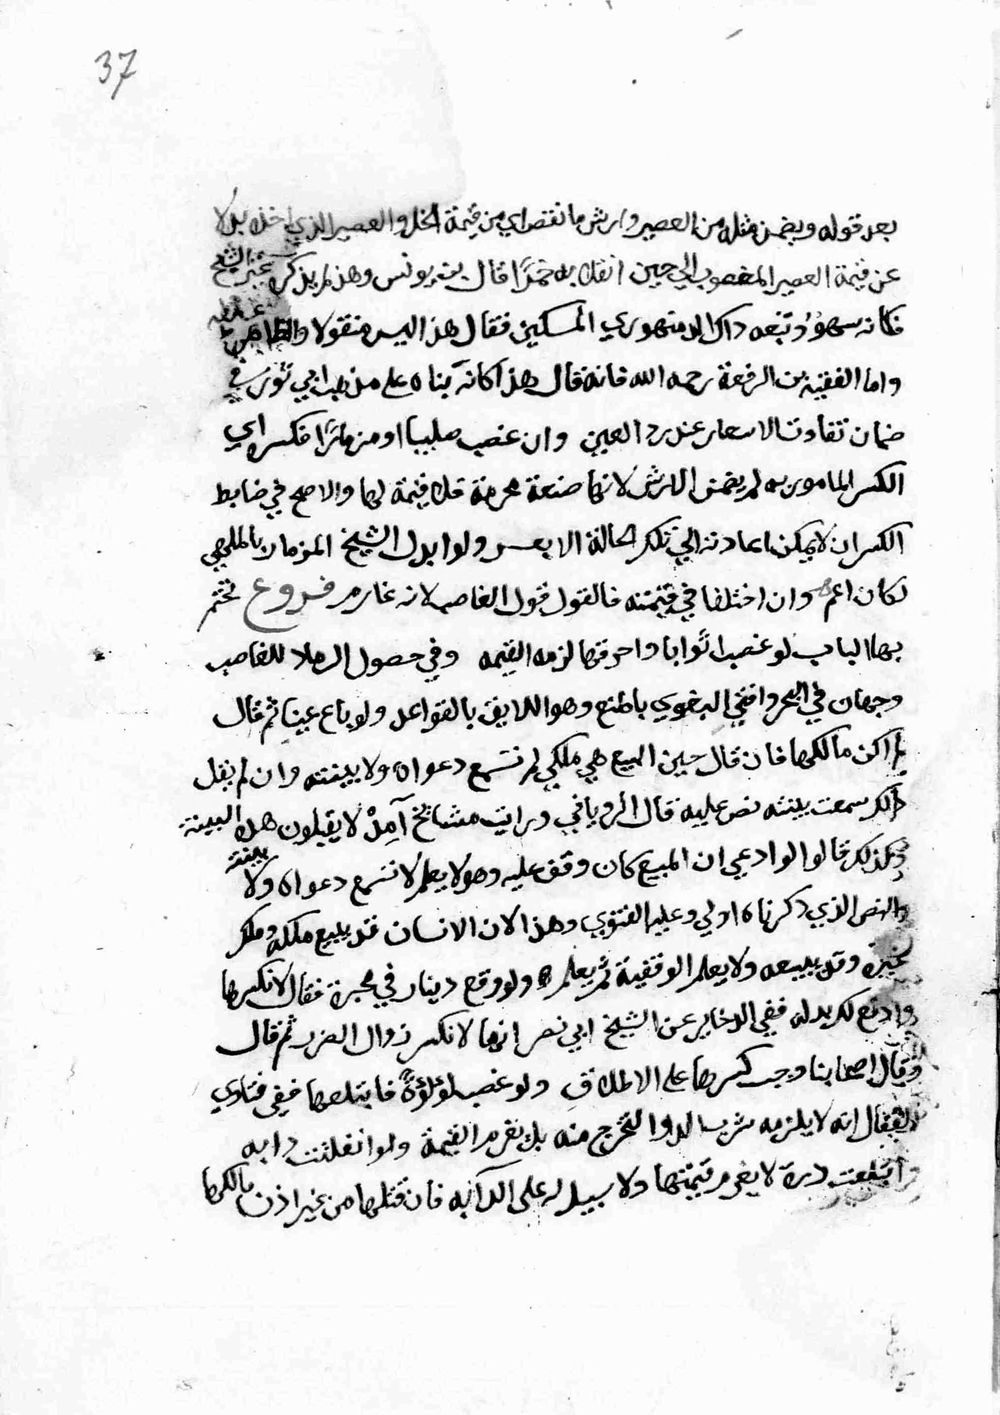 37
بعد قوله ويضمن مثله من العصير وارش ما نقص اي من قيمة الخل والعصير الذي اخذه بدلا
عن قيمة العصير المغصوب الي حين انقلابه خمرًا قال بن يونس وهذا لم يذكره غير الشيخ
فكانه سهوٌ وتبعه ذاك الدمنهوري المسكين فقال هذا ليس منقولا والظاهر غلطه
واما الفقيه بن الرفعة رحمه الله فانه قال هذا كانه بناه علي مذهب ابي ثور في
ضمان تفاوت الاسعار عند رد العين وان غصب صليبا او مزمارًا فكسره اي
الكسر المامور به لم يضمن الارش لانها صنعة محرمة فلا قيمة لها والاصح في ضابط
الكسر ان لا يمكن اعادته الي تلك الحالة الا بعسر ولو ابدل الشيخ المزمار بالملاهي
لكان اعم وان اختلفا في قيمته فالقول قول الغاصب لانه غارم فروع نختم
بها الباب لو غصب اثوابا واحرقها لزمه القيمه وفي حصول الرماد للغاصب
وجهان في البحر وافتي البغوي بالمنع وهو اللايق بالقواعد ولو باع عينا ثم قال
لم اكن مالكها فان قال حين البيع هي ملكي لم تسمع دعواه ولا بينته وان لم يقل
ذلك سمعت بينته نص عليه قال الروياني ورايت مشائخ آمل لا يقبلون هذه البينة
وكذلك قالوا لو ادعي ان المبيع كان وقف عليه وهو لا يعلم لا تسمع دعواه ولا بينته
والنص الذي ذكرناه اولي وعليه الفتوي وهذا لان الانسان قد يبيع ملكه وملك
غيره وقد يبيعه ولا يعلم الوقفية ثم يعلم ولو وقع دينار في محبرة فقال لا نكسرها
وادفع لك بدله ففي الدخاير عن الشيخ ابي نصر انها لا تكسر لزوال الضرر ثم قال
وقال اصحابنا وجب كسرها علي الاطلاق ولو غصب لؤلؤةً فابتلعها ففي فتاوي
القفال انه لا يلزمه شرب الدوا لتخرج منه بل يغرم القيمة ولو انفلتت دابه
وابتلعت درة لا يغرم قيمتها ولا سبيل له علي الدابه فان قتلها من غير اذن مالكها